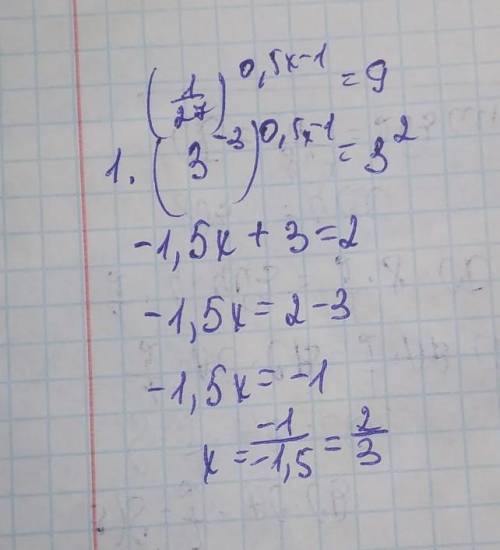 (1/27)^(0,5x-1) = 9
1. (3^(-3))^(0,5x-1) = 3^2
-1,5x + 3 = 2
-1,5x = 2 - 3
-1,5x = -1
x = -1/-1,5 = 2/3